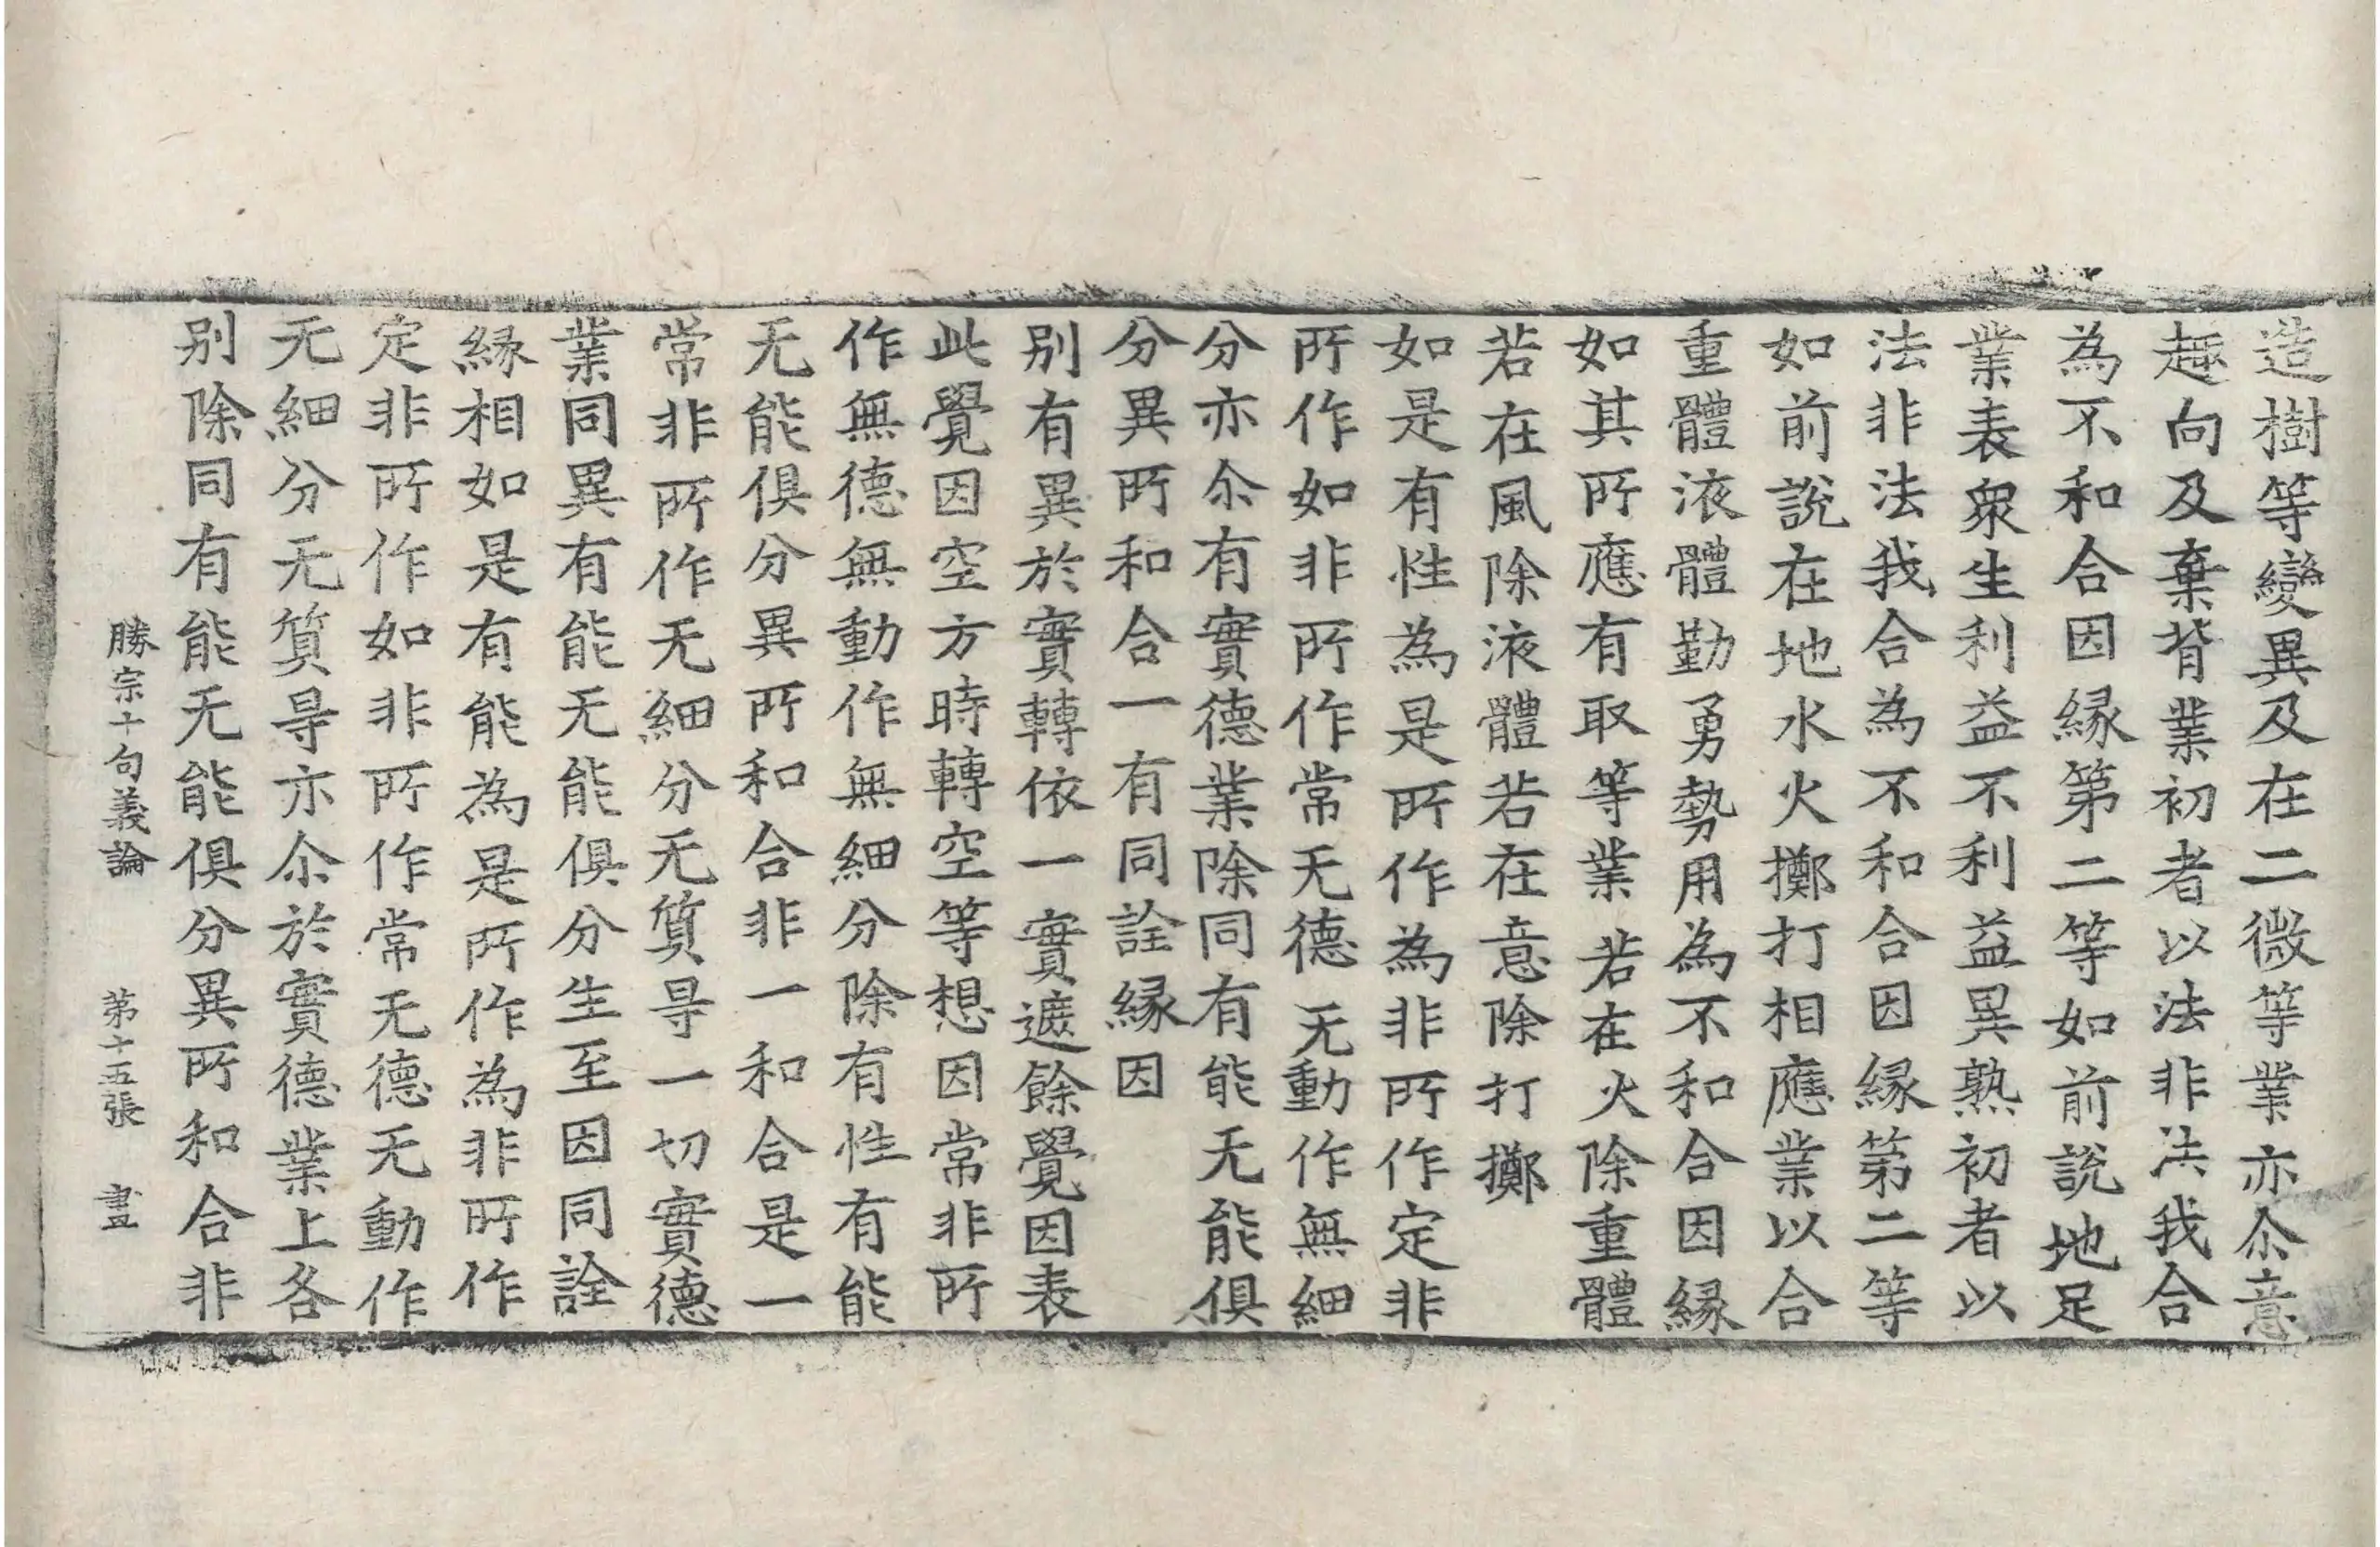 造樹等變異及在二微等業亦尒意
趣向及棄背業初者以法非法我合
為不和合因縁第二等如前說地足
業表衆生利益不利益異熟初者以
法非法我合為不和合因縁第二等
如前說在地水火擲打相應業以合
重體液體勤勇勢用為不和合因縁
如其所應有取等業若在火除重體
若在風除液體若在意除打擲
如是有性為是所作為非所作定非
所作如非所作常无德无動作無細
分亦尒有實德業除同有能无能俱
分異所和合一有同詮縁因
別有異於實轉依一實遮餘覺因表
此覺因空方時轉空等想因常非所
作無德無動作無細分除有性有能
无能俱分異所和合非一和合是一
常非所作无細分无質㝵一切實德
業同異有能无能俱分生至因同詮
縁相如是有能為是所作為非所作
定非所作如非所作常无德无動作
无細分无質㝵亦尒於實德業上各
別除同有能无能俱分異所和合非
勝宗十句義論 第十五張 晝